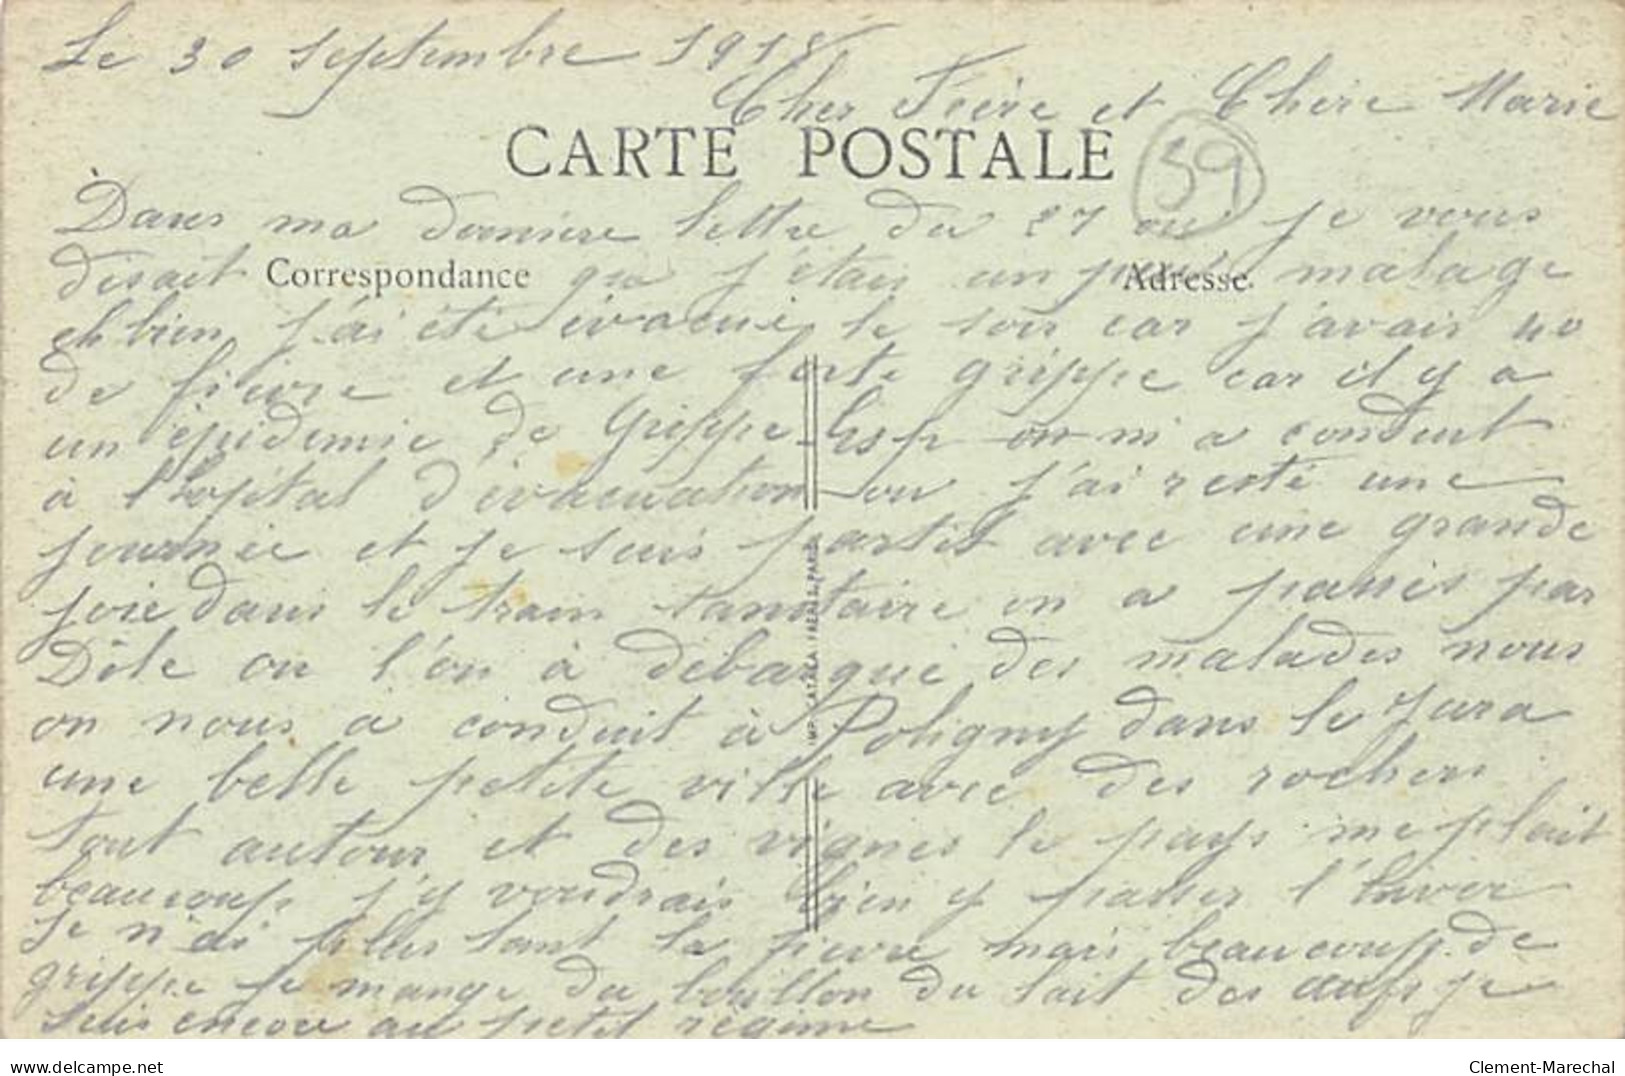 Le 30 septembre 1918
Cher Frère et Chère Marie
CARTE POSTALE
59
Dans ma dernière lettre du 27 ou je vous
disait que j'étais un peu malage
Correspondance
Adresse
eh bien j'ai été évacué le soir car j'avais 40
de fièvre et une forte grippe car il y a
un épidemie de Grippe on m'a conduit
à l'hopital d'évacuation ou j'ai resté une
journée et je suis partit avec une grande
joie dans le train sanitaire on a passés par
Dôle ou l'on à debarqué des malades nous
on nous a conduit à Poligny dans le Jura
une belle petite ville avec des rochers
tout autour et des vignes le pays me plait
beaucoup j'y voudrais bien y passer l'hiver
Je n'ai plus tant la fievre mais beaucoup de
grippe je mange du bouillon du lait des œufs je
suis encore au petit régime
Clement-Marechal
delcampe.net